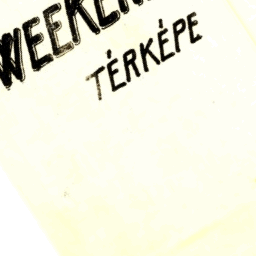 WEEKEN
TÉRKÉPE